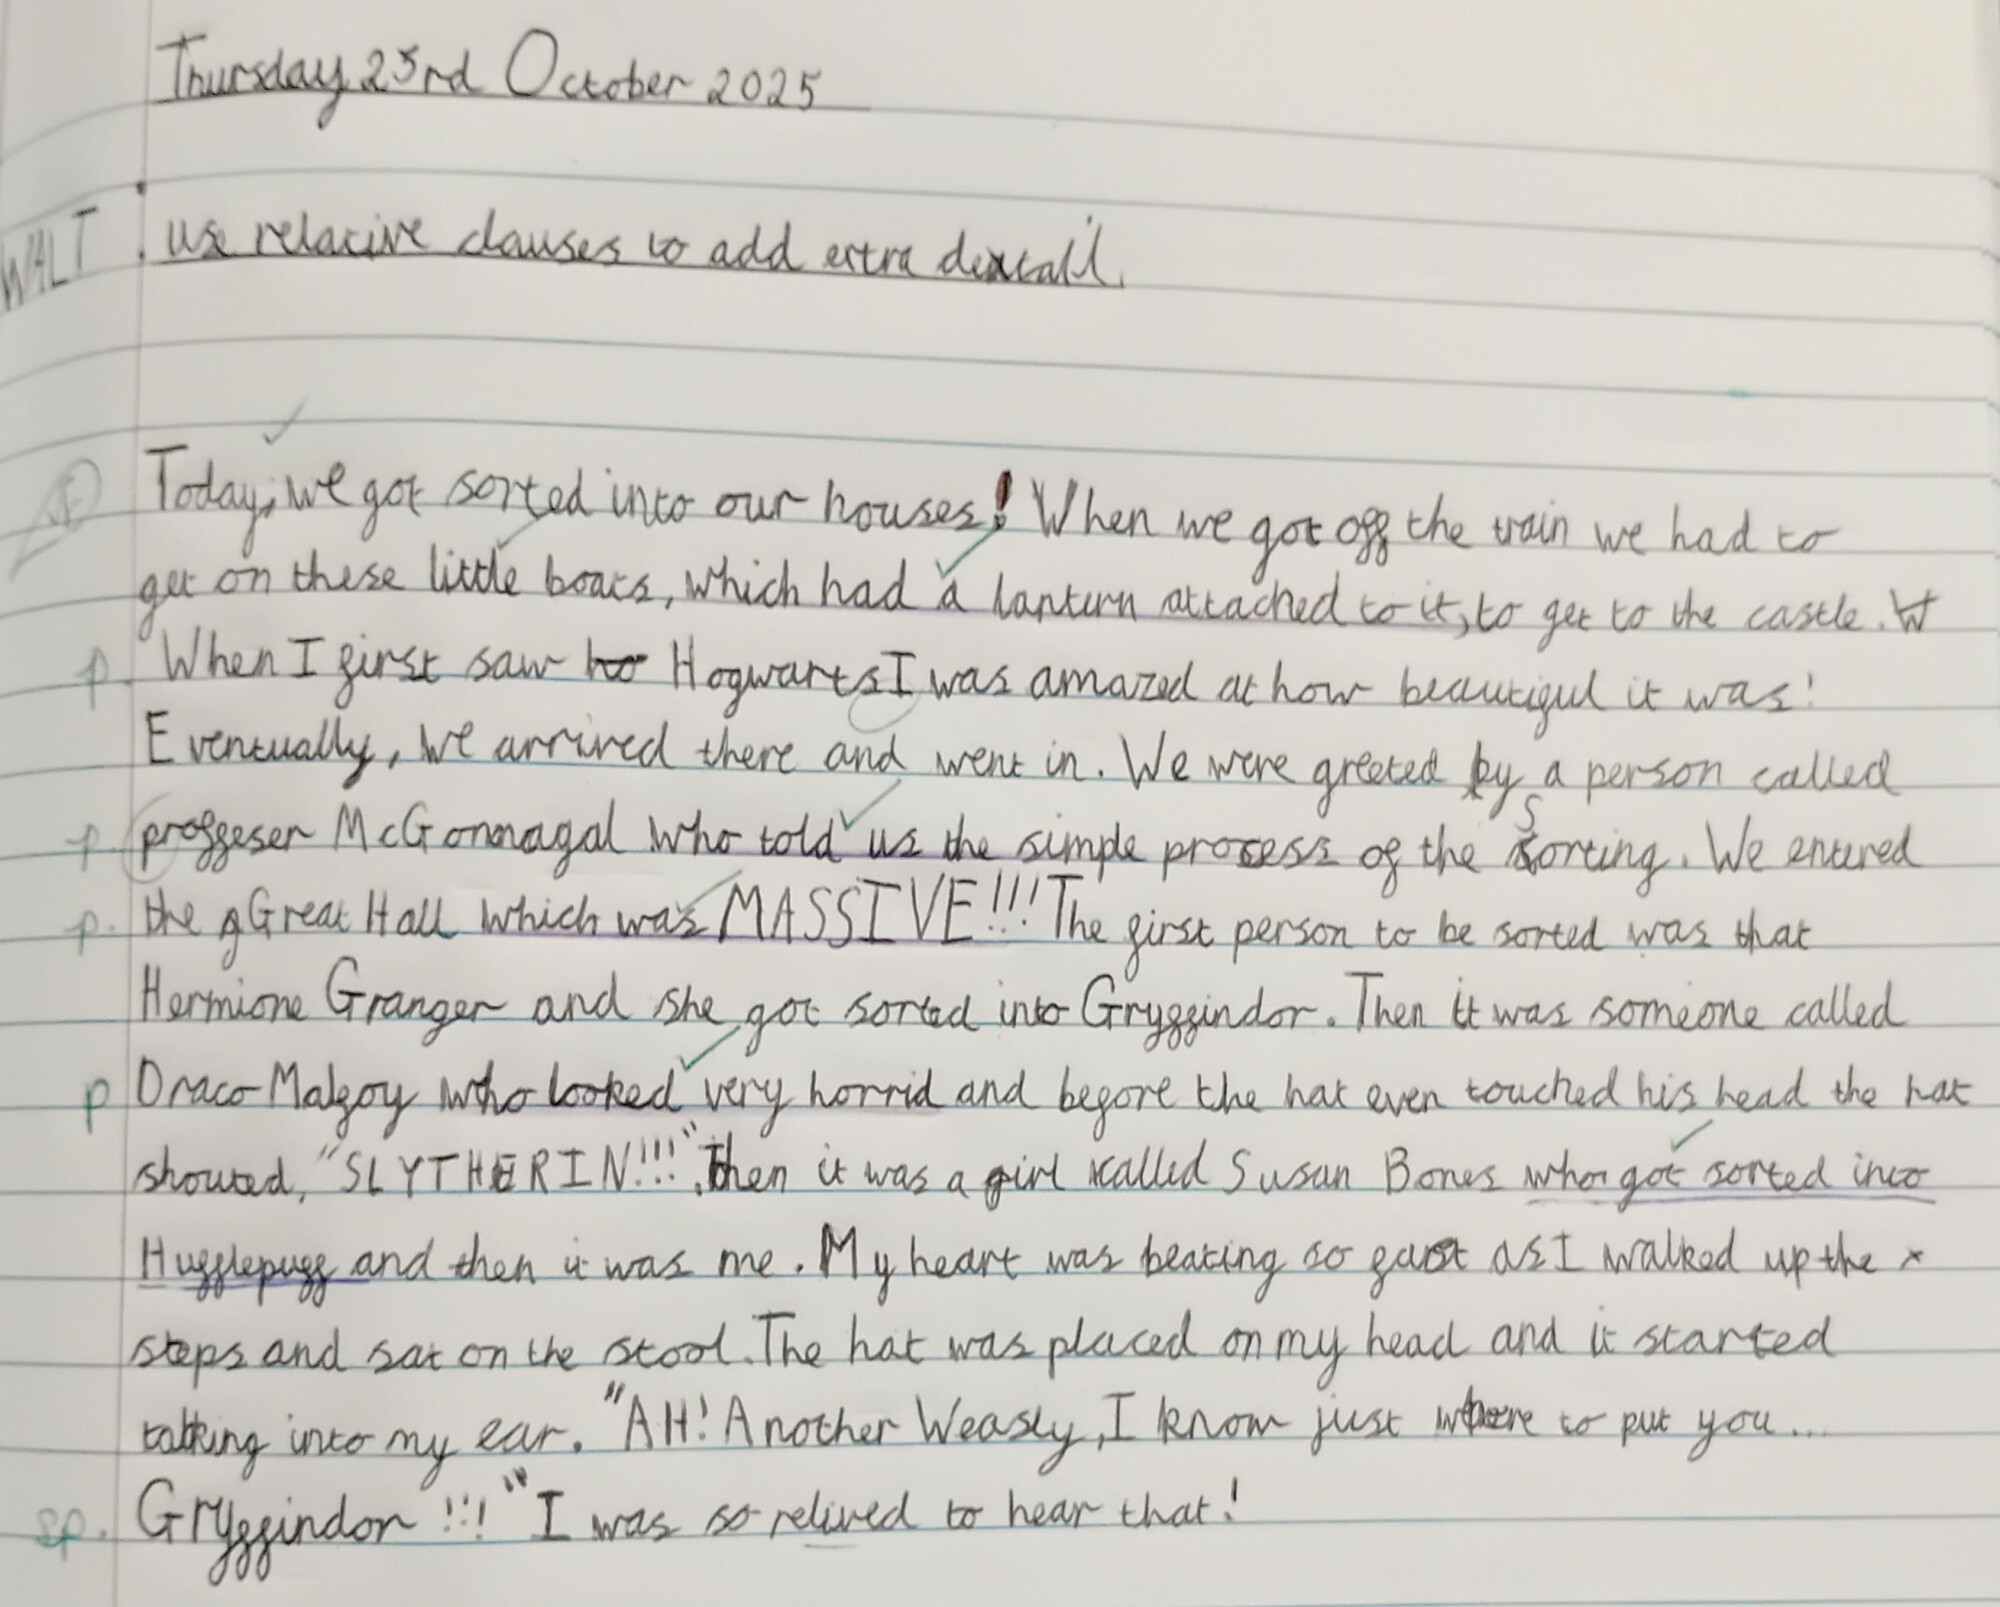 Thursday 23rd October 2025
WALT : use relative clauses to add extra detail.
Today, we got sorted into our houses! When we got off the train we had to
get on these little boats, which had a lantern attached to it, to get to the castle. W
p. When I first saw ho Hogwarts I was amazed at how beautiful it was!
Eventually, we arrived there and went in. We were greeted by a person called
p. proffeser McGonnagal who told us the simple process of the Sorting. We entered
p. the g Great Hall which was MASSIVE!!! The first person to be sorted was that
Hermione Granger and she got sorted into Gryffindor. Then it was someone called
p Draco Malfoy who looked very horrid and before the hat even touched his head the hat
shouted, "SLYTHERIN!!!". Then it was a girl called Susan Bones who got sorted into
Hufflepuff and then it was me. My heart was beating so fast as I walked up the x
steps and sat on the stool. The hat was placed on my head and it started
talking into my ear. "AH! Another Weasly, I know just where to put you...
sp. Gryffindor!!!" I was so relived to hear that!